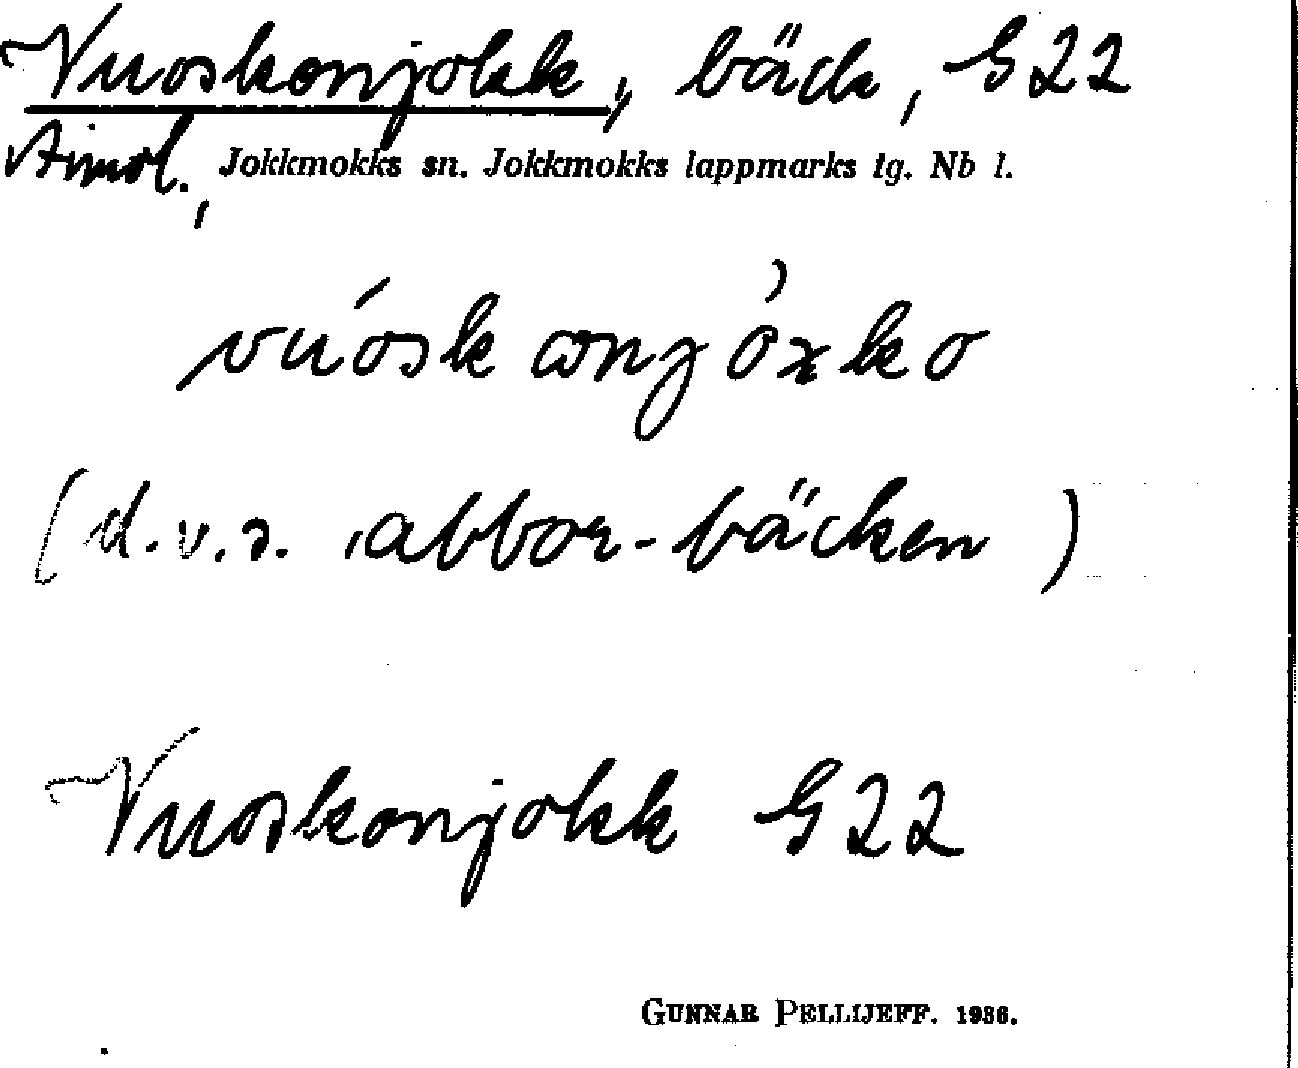 Vuoskonjokk, bäck, G22
Jokkmokks sn. Jokkmokks lappmarks tg. Nb l.
(d.v.s. abbor-bäcken)
Vuoskonjokk G22
GUNNAR PELLIJEFF. 1936.